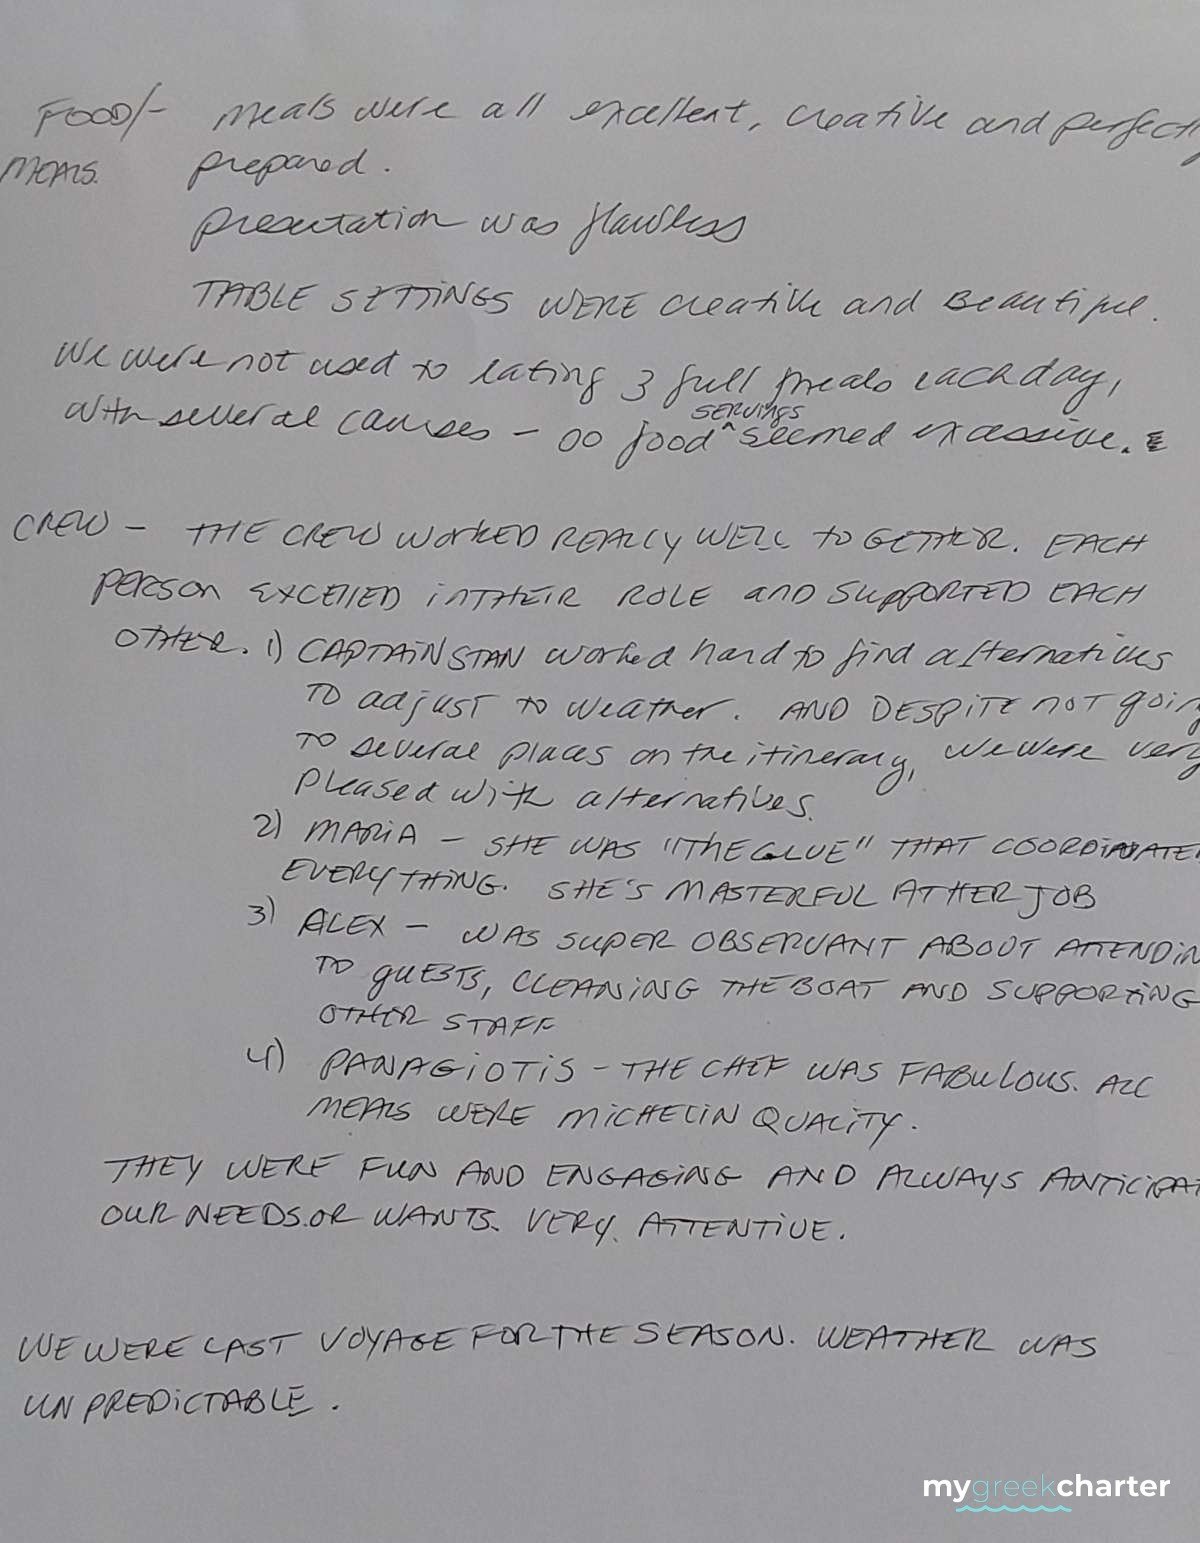 FOOD/- meals were all excellent, creative and perfectly
MEALS. prepared.
presentation was flawless
TABLE SETTINGS WERE creative and Beautiful.
We were not used to eating 3 full meals each day,
with several courses - so food ^ seemed excessive.
SERVINGS
CREW - THE CREW WORKED REALLY WELL TO GETHER. EACH
person EXCELLED iN THEIR ROLE and SUPPORTED EACH
OTHER. 1) CAPTAIN STAN worked hard to find alternatives
TO adjUST to weather. AND DESPITE not going
TO several places on the itinerary, we were very
pleased with alternatives.
2) MARIA - SHE WAS "THE GLUE" THAT COORDINATED
EVERYTHING. SHE'S MASTERFUL AT HER JOB
3) ALEX - WAS SUPER OBSERVANT ABOUT ATTENDIN
TO guESTS, CLEANING THE BOAT AND SUPPORTING
OTHER STAFF
4) PANAGIOTIS - THE CHEF WAS FABULOUS. ALL
MEALS WERE MICHELIN QUALITY.
THEY WERE FUN AND ENGAGING AND ALWAYS ANTICIPAT
OUR NEEDS OR WANTS. VERY ATTENTIVE.
WE WERE LAST VOYAGE FOR THE SEASON. WEATHER WAS
UNPREDICTABLE.
mygreekcharter